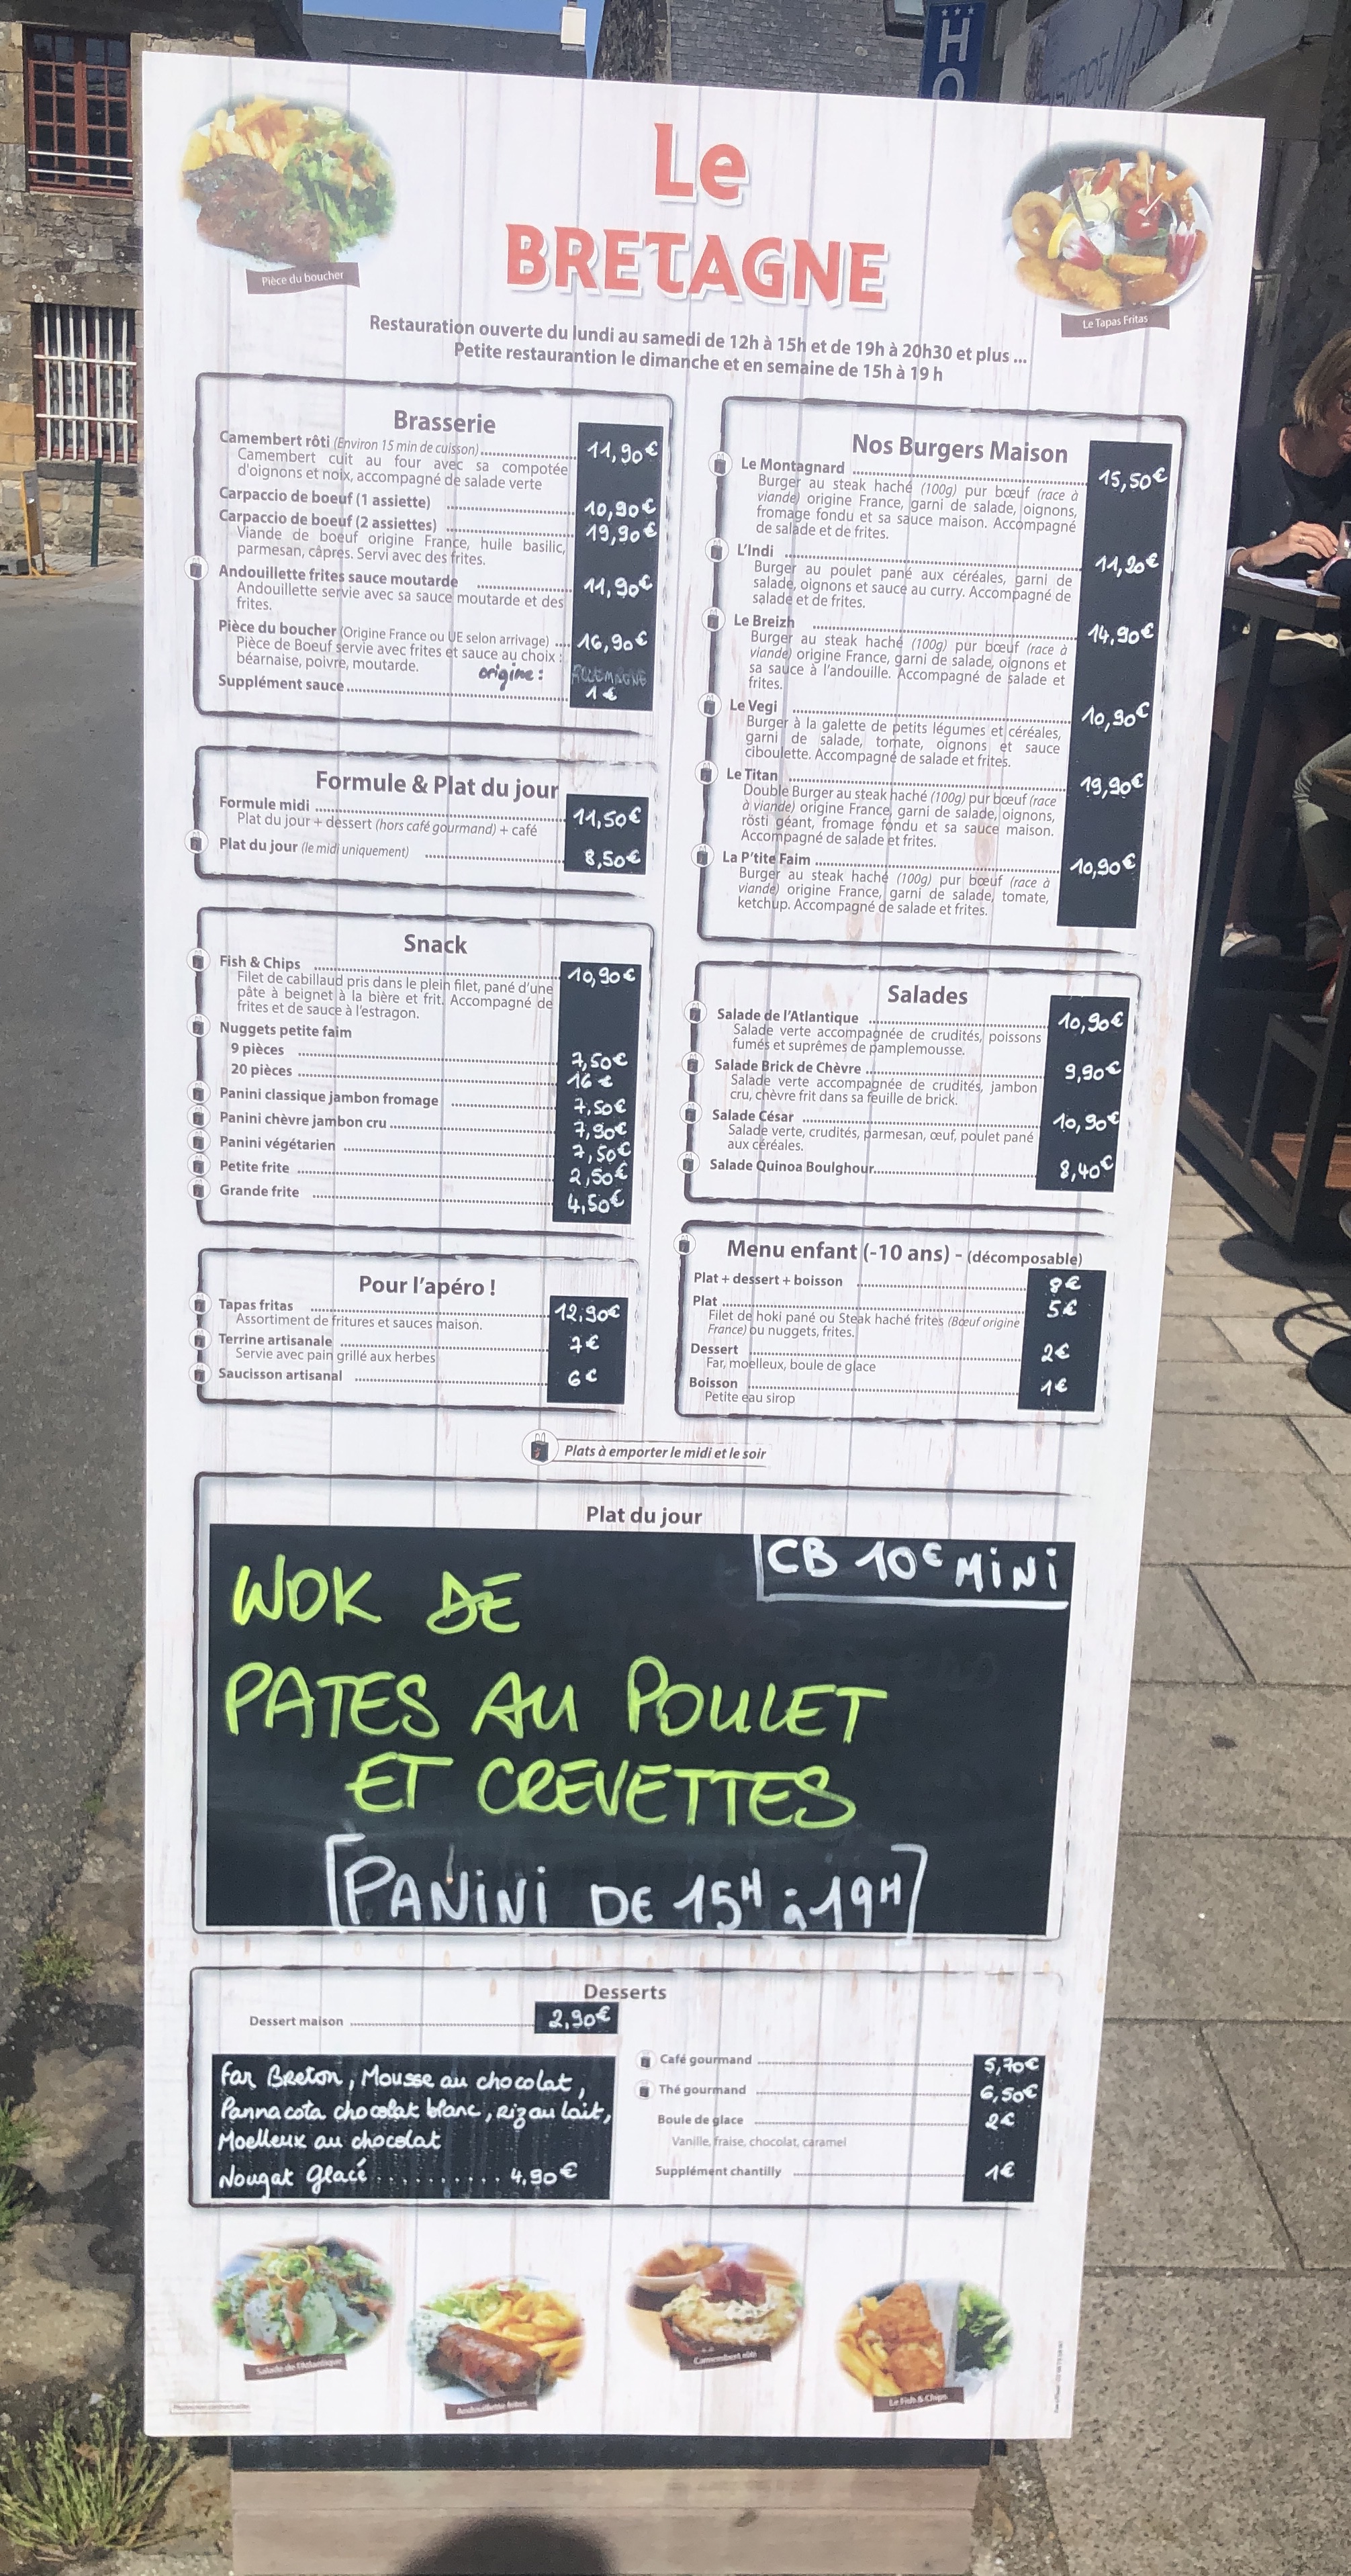 H
O
Le
BRETAGNE
Pièce du boucher
Le Tapas Fritas
Restauration ouverte du lundi au samedi de 12h à 15h et de 19h à 20h30 et plus ...
Petite restaurantion le dimanche et en semaine de 15h à 19 h
Brasserie
Camembert rôti (Environ 15 min de cuisson) 11,90€
Camembert cuit au four avec sa compotée
d'oignons et noix, accompagné de salade verte
Carpaccio de boeuf (1 assiette) 10,90€
Carpaccio de boeuf (2 assiettes) 19,90€
Viande de boeuf origine France, huile basilic,
parmesan, câpres. Servi avec des frites.
Andouillette frites sauce moutarde 11,90€
Andouillette servie avec sa sauce moutarde et des
frites.
Pièce du boucher (Origine France ou UE selon arrivage) 16,90€
Pièce de Boeuf servie avec frites et sauce au choix :
béarnaise, poivre, moutarde.
origine : ALLEMAGNE
Supplément sauce 1€
Formule & Plat du jour
Formule midi 11,50€
Plat du jour + dessert (hors café gourmand) + café
Plat du jour (le midi uniquement) 8,50€
Snack
Fish & Chips 10,90€
Filet de cabillaud pris dans le plein filet, pané d'une
pâte à beignet à la bière et frit. Accompagné de
frites et de sauce à l'estragon.
Nuggets petite faim
9 pièces 7,50€
20 pièces 16€
Panini classique jambon fromage 7,50€
Panini chèvre jambon cru 7,90€
Panini végétarien 7,50€
Petite frite 2,50€
Grande frite 4,50€
Pour l'apéro !
Tapas fritas 12,90€
Assortiment de fritures et sauces maison.
Terrine artisanale 7€
Servie avec pain grillé aux herbes
Saucisson artisanal 6€
Nos Burgers Maison
Le Montagnard 15,50€
Burger au steak haché (100g) pur bœuf (race à
viande) origine France, garni de salade, oignons,
fromage fondu et sa sauce maison. Accompagné
de salade et de frites.
L'Indi 11,20€
Burger au poulet pané aux céréales, garni de
salade, oignons et sauce au curry. Accompagné de
salade et de frites.
Le Breizh 14,90€
Burger au steak haché (100g) pur bœuf (race à
viande) origine France, garni de salade, oignons et
sa sauce à l'andouille. Accompagné de salade et
frites.
Le Vegi 10,90€
Burger à la galette de petits légumes et céréales,
garni de salade, tomate, oignons et sauce
ciboulette. Accompagné de salade et frites.
Le Titan 19,90€
Double Burger au steak haché (100g) pur bœuf (race
à viande) origine France, garni de salade, oignons,
rösti géant, fromage fondu et sa sauce maison.
Accompagné de salade et frites.
La P'tite Faim 10,90€
Burger au steak haché (100g) pur bœuf (race à
viande) origine France, garni de salade, tomate,
ketchup. Accompagné de salade et frites.
Salades
Salade de l'Atlantique 10,90€
Salade verte accompagnée de crudités, poissons
fumés et suprêmes de pamplemousse.
Salade Brick de Chèvre 9,90€
Salade verte accompagnée de crudités, jambon
cru, chèvre frit dans sa feuille de brick.
Salade César 10,90€
Salade verte, crudités, parmesan, œuf, poulet pané
aux céréales.
Salade Quinoa Boulghour 8,40€
Menu enfant (-10 ans) - (décomposable)
Plat + dessert + boisson 8€
Plat 5€
Filet de hoki pané ou Steak haché frites (Bœuf origine
France) ou nuggets, frites.
Dessert 2€
Far, moelleux, boule de glace
Boisson 1€
Petite eau sirop
Plats à emporter le midi et le soir
Plat du jour
CB 10€ MiNi
WOK DE
PATES AU POULET
ET CREVETTES
[PANiNi DE 15H à 19H]
Desserts
Dessert maison 2,90€
Far Breton, Mousse au chocolat,
Panna cota chocolat blanc, Riz au lait,
Moelleux au chocolat
Nougat Glacé.......... 4,90€
Café gourmand 5,70€
Thé gourmand 6,50€
Boule de glace 2€
Vanille, fraise, chocolat, caramel
Supplément chantilly 1€
Salade de l'Atlantique
Andouillette frites
Camembert rôti
Le Fish & Chips